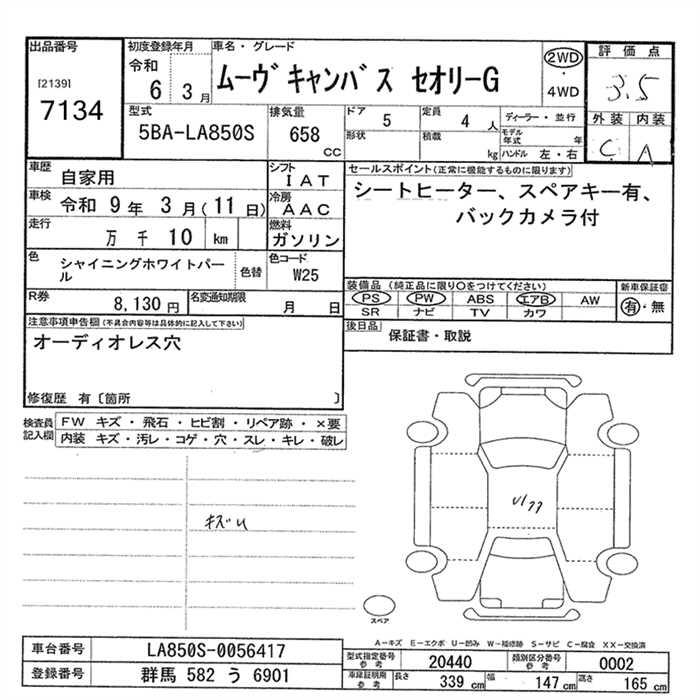 出品番号 初度登録年月 車名・グレード 評価点
[2139] 令和 ムーヴキャンバス セオリーG 2WD ・ 4WD 3.5
7134 6 3月
外装 内装
C A
型式 排気量 ドア 5 定員 4人 ディーラー・並行
5BA-LA850S 658 cc 形状 積載 kg モデル年式 年
ハンドル 左・右
車歴 自家用 シフト IAT セールスポイント(正常に機能するものに限ります)
車検 令和 9年 3月(11日) 冷房 AAC シートヒーター、スペアキー有、
走行 万 千 10 km 燃料 ガソリン バックカメラ付
色 シャイニングホワイトパール 色替 色コード W25
装備品(純正品に限り○をつけてください) 新車保証書
PS PW ABS エアB AW 有・無
SR ナビ TV カワ
R券 8,130円 名変通知期限 月 日
後日品 保証書・取説
注意事項申告欄(不具合内容等は具体的に記入して下さい)
オーディオレス穴
修復歴 有〔箇所 〕
検査員記入欄 FW キズ・飛石・ヒビ割・リペア跡・×要
内装 キズ・汚レ・コゲ・穴・スレ・キレ・破レ
キズU
スペア
A-キズ E-エクボ U-凹み W-補修跡 S-サビ C-腐食 XX-交換済
車台番号 LA850S-0056417 型式指定番号 参考 20440 類別区分番号 参考 0002
登録番号 群馬 582 う 6901 車庫証明用 参考 長さ 339cm 幅 147cm 高さ 165cm